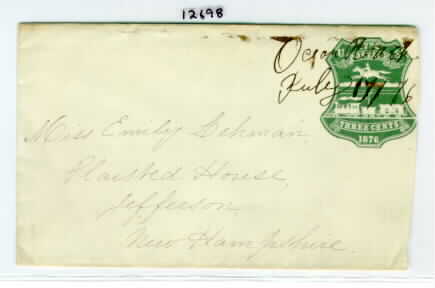 12698
Ocean Beach
July 17/76
THREE CENTS
1876
Miss Emily Lehman
Plaisted House,
Jefferson
New Hampshire.